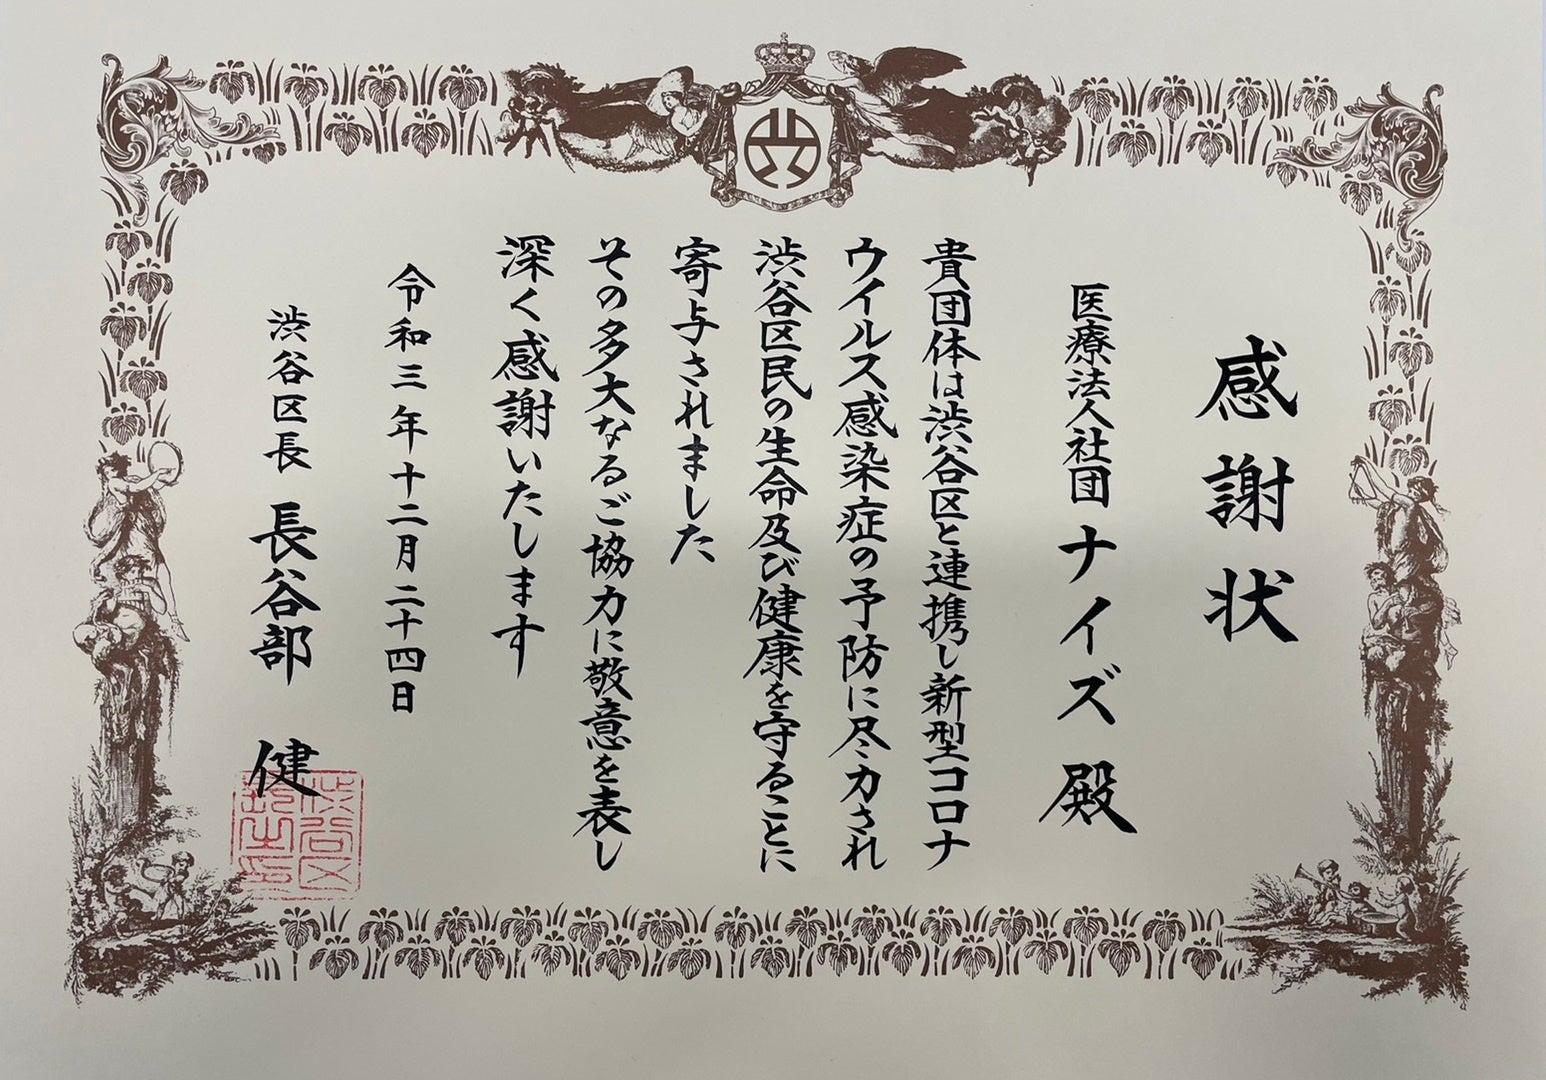 感謝状
医療法人社団ナイズ 殿
貴団体は渋谷区と連携し新型コロナ
ウイルス感染症の予防に尽力され
渋谷区民の生命及び健康を守ることに
寄与されました
その多大なるご協力に敬意を表し
深く感謝いたします
令和三年十二月二十四日
渋谷区長 長谷部 健
渋谷区